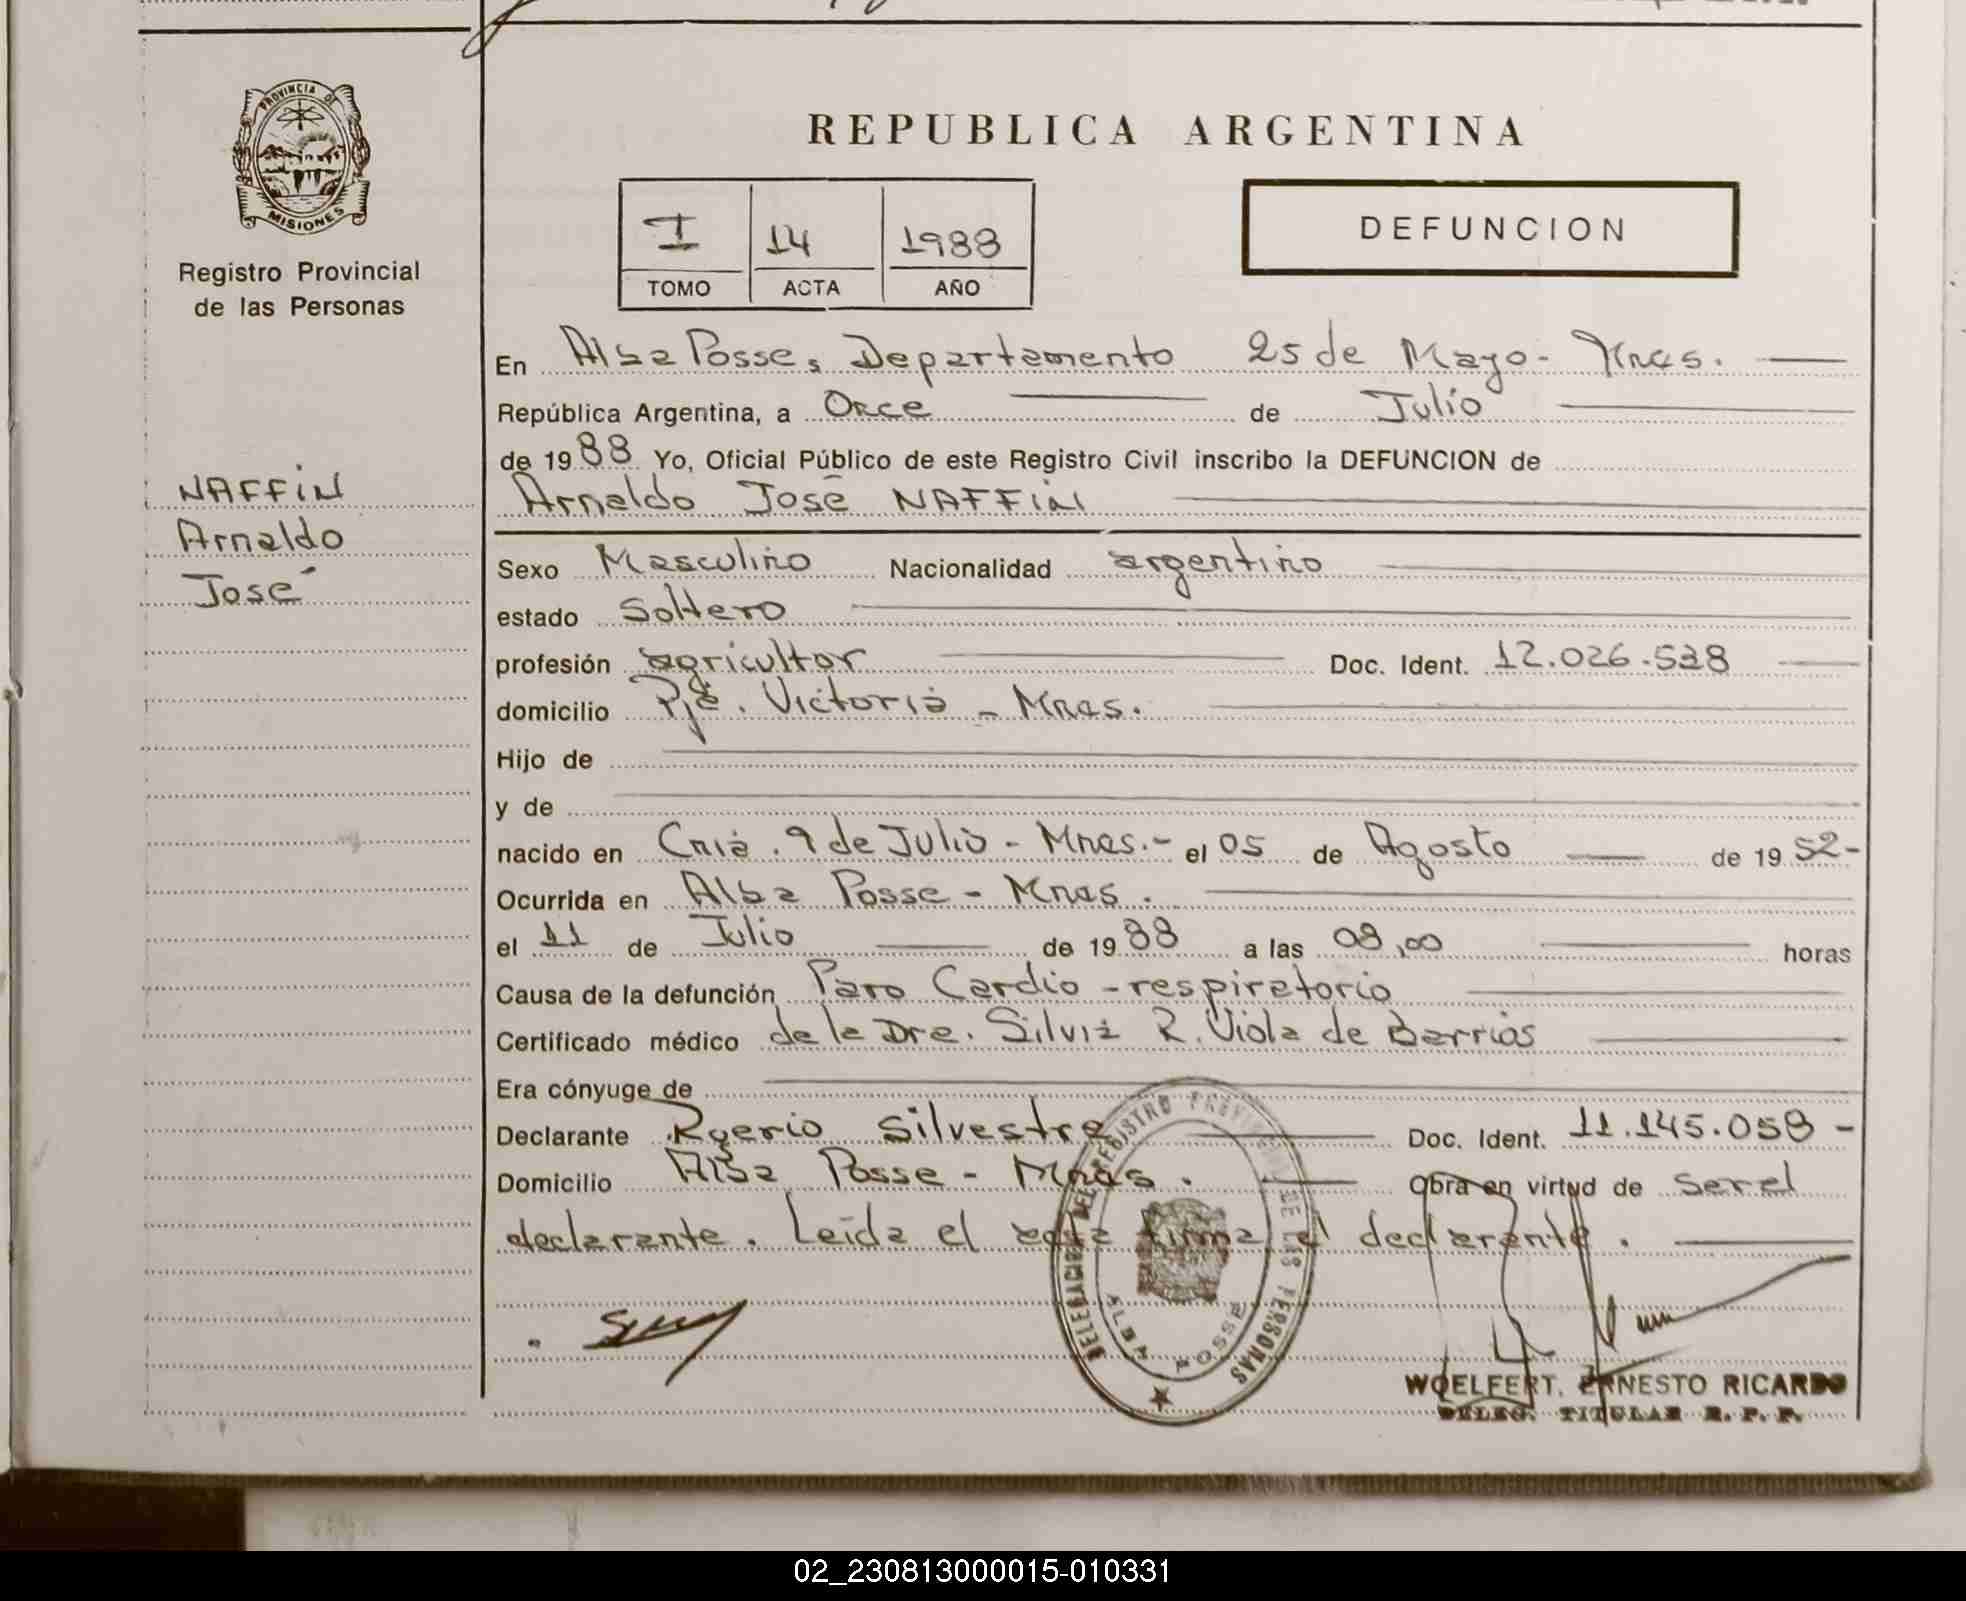 PROVINCIA DE
MISIONES
Registro Provincial
de las Personas
NAFFiN
Arnaldo
José
REPUBLICA ARGENTINA
I 14 1988
TOMO ACTA AÑO
DEFUNCION
En Alba Posse, Departamento 25 de Mayo - Mnes.
República Argentina, a Once de Julio
de 1988 Yo, Oficial Público de este Registro Civil inscribo la DEFUNCION de
Arnaldo José NAFFiN
Sexo Masculino Nacionalidad argentino
estado Soltero
profesión agricultor Doc. Ident. 12.026.538
domicilio Pje. Victoria - Mnes.
Hijo de
y de
nacido en Cnia. 9 de Julio - Mnes.- el 05 de Agosto de 1952-
Ocurrida en Alba Posse - Mnes.
el 11 de Julio de 1988 a las 08,00 horas
Causa de la defunción Paro Cardio-respiratorio
Certificado médico de la Dra. Silvia R. Viola de Barrios
Era cónyuge de
Declarante Silvestre Doc. Ident. 11.145.058-
Domicilio Alba Posse - Mnes. Obra en virtud de Ser el
declarante. Leída el acta firma el declarante.
DELEGACION DEL REGISTRO PROVINCIAL DE LAS PERSONAS
ALBA POSSE
WOELFERT, ERNESTO RICARDO
DELEG. TITULAR R. P. P.
02_230813000015-010331